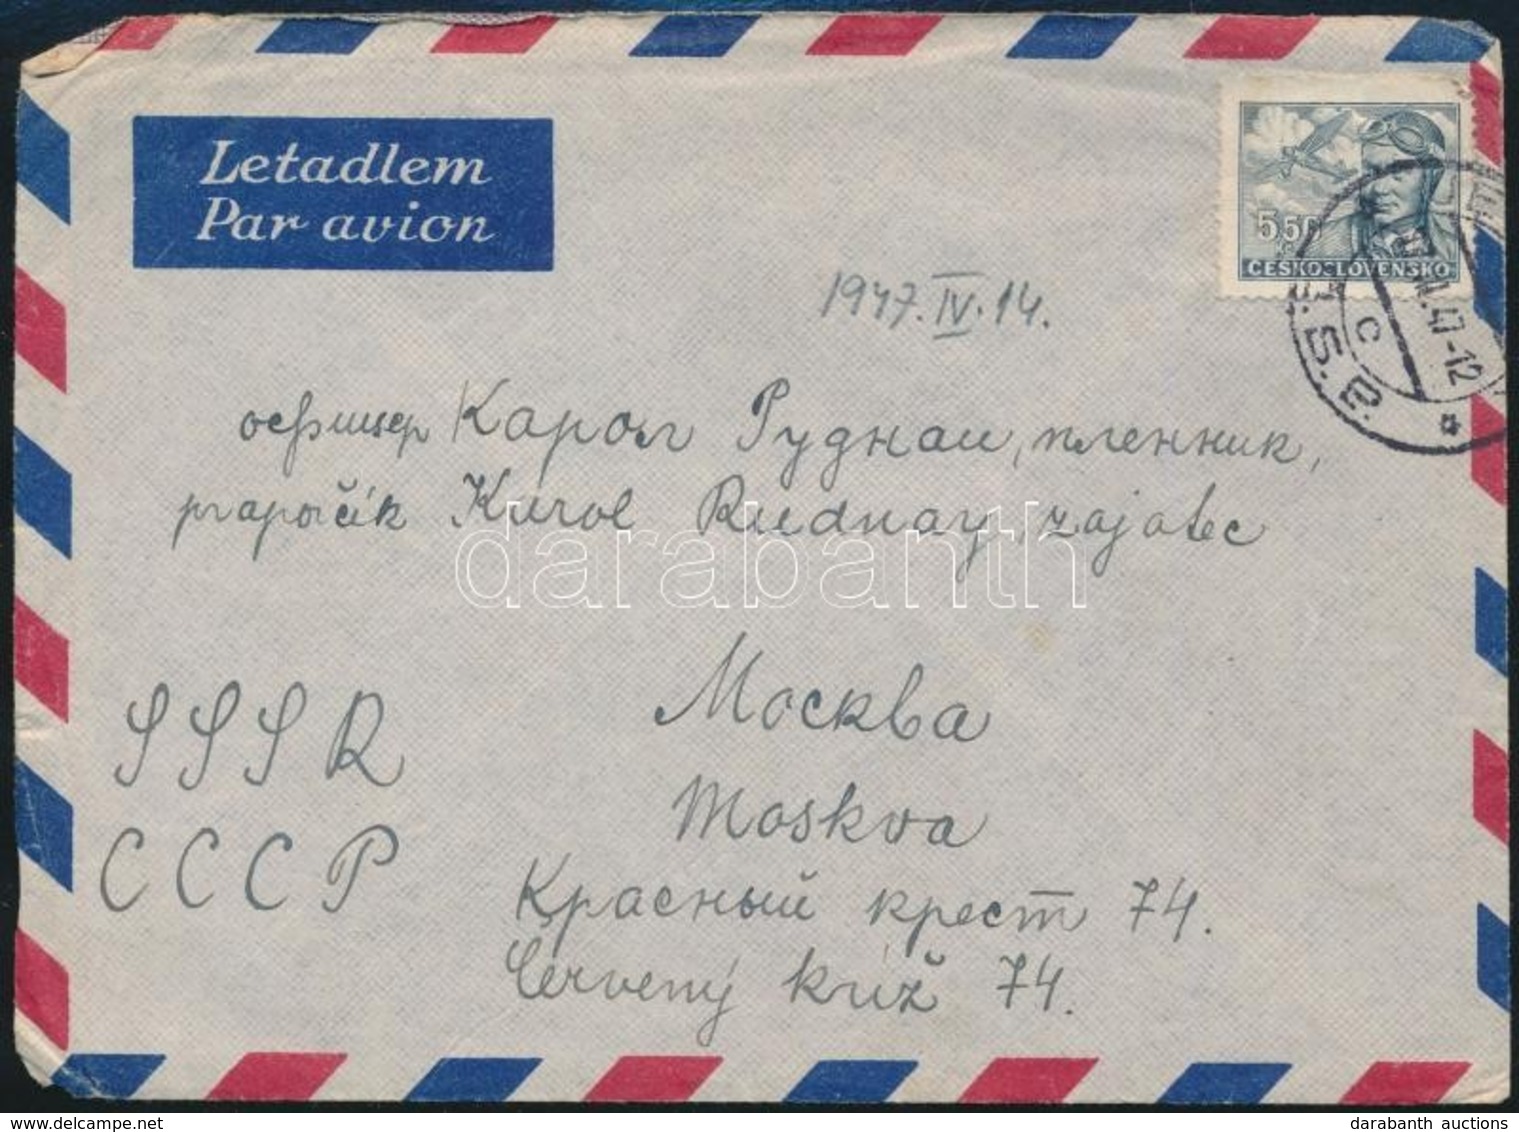 Letadlem
Par avion
5.50
ČESKOSLOVENSKO
47-12
c
1947.IV.14.
осфицер Кароль Руднаи, пленник,
prapočík Karol Rudnay, zajatec
darabanth
Москва
SSSR
Moskva
СССР
Красный крест 74.
Červený kríž 74.
darabanth auctions
www.delcampe.net